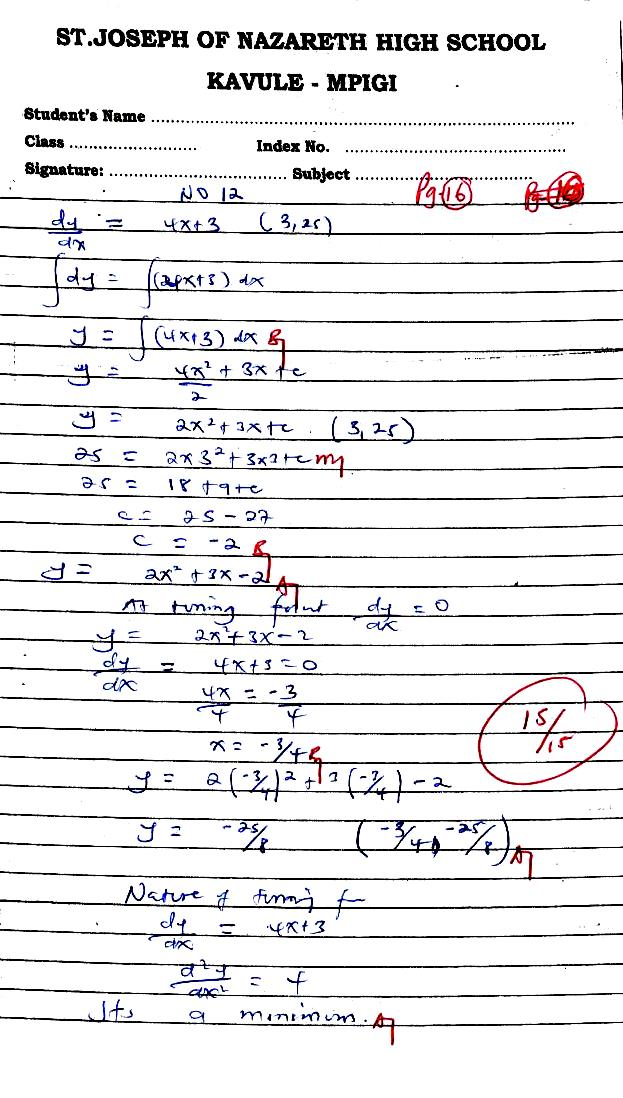 ST.JOSEPH OF NAZARETH HIGH SCHOOL
KAVULE - MPIGI
Student's Name ..........
Class .......... Index No. ..........
Signature: .......... Subject ..........
NO 12 Pg 16
dy/dx = 4x+3 (3,25)
∫dy = ∫(4x+3) dx
y = ∫(4x+3) dx B1
y = 4x²/2 + 3x + c
y = 2x² + 3x + c . (3,25)
25 = 2x3² + 3x3 + c M1
25 = 18 + 9 + c
c = 25 - 27
c = -2 B1
y = 2x² + 3x - 2 A1
At tuning point dy/dx = 0
y = 2x² + 3x - 2
dy/dx = 4x+3 = 0
4x/4 = -3/4
x = -3/4 B1
15/15
y = 2(-3/4)² + 3(-3/4) - 2
y = -25/8 (-3/4, -25/8) A1
Nature of
dy/dx = 4x+3
d²y/dx² = 4
Its a minimum. A1